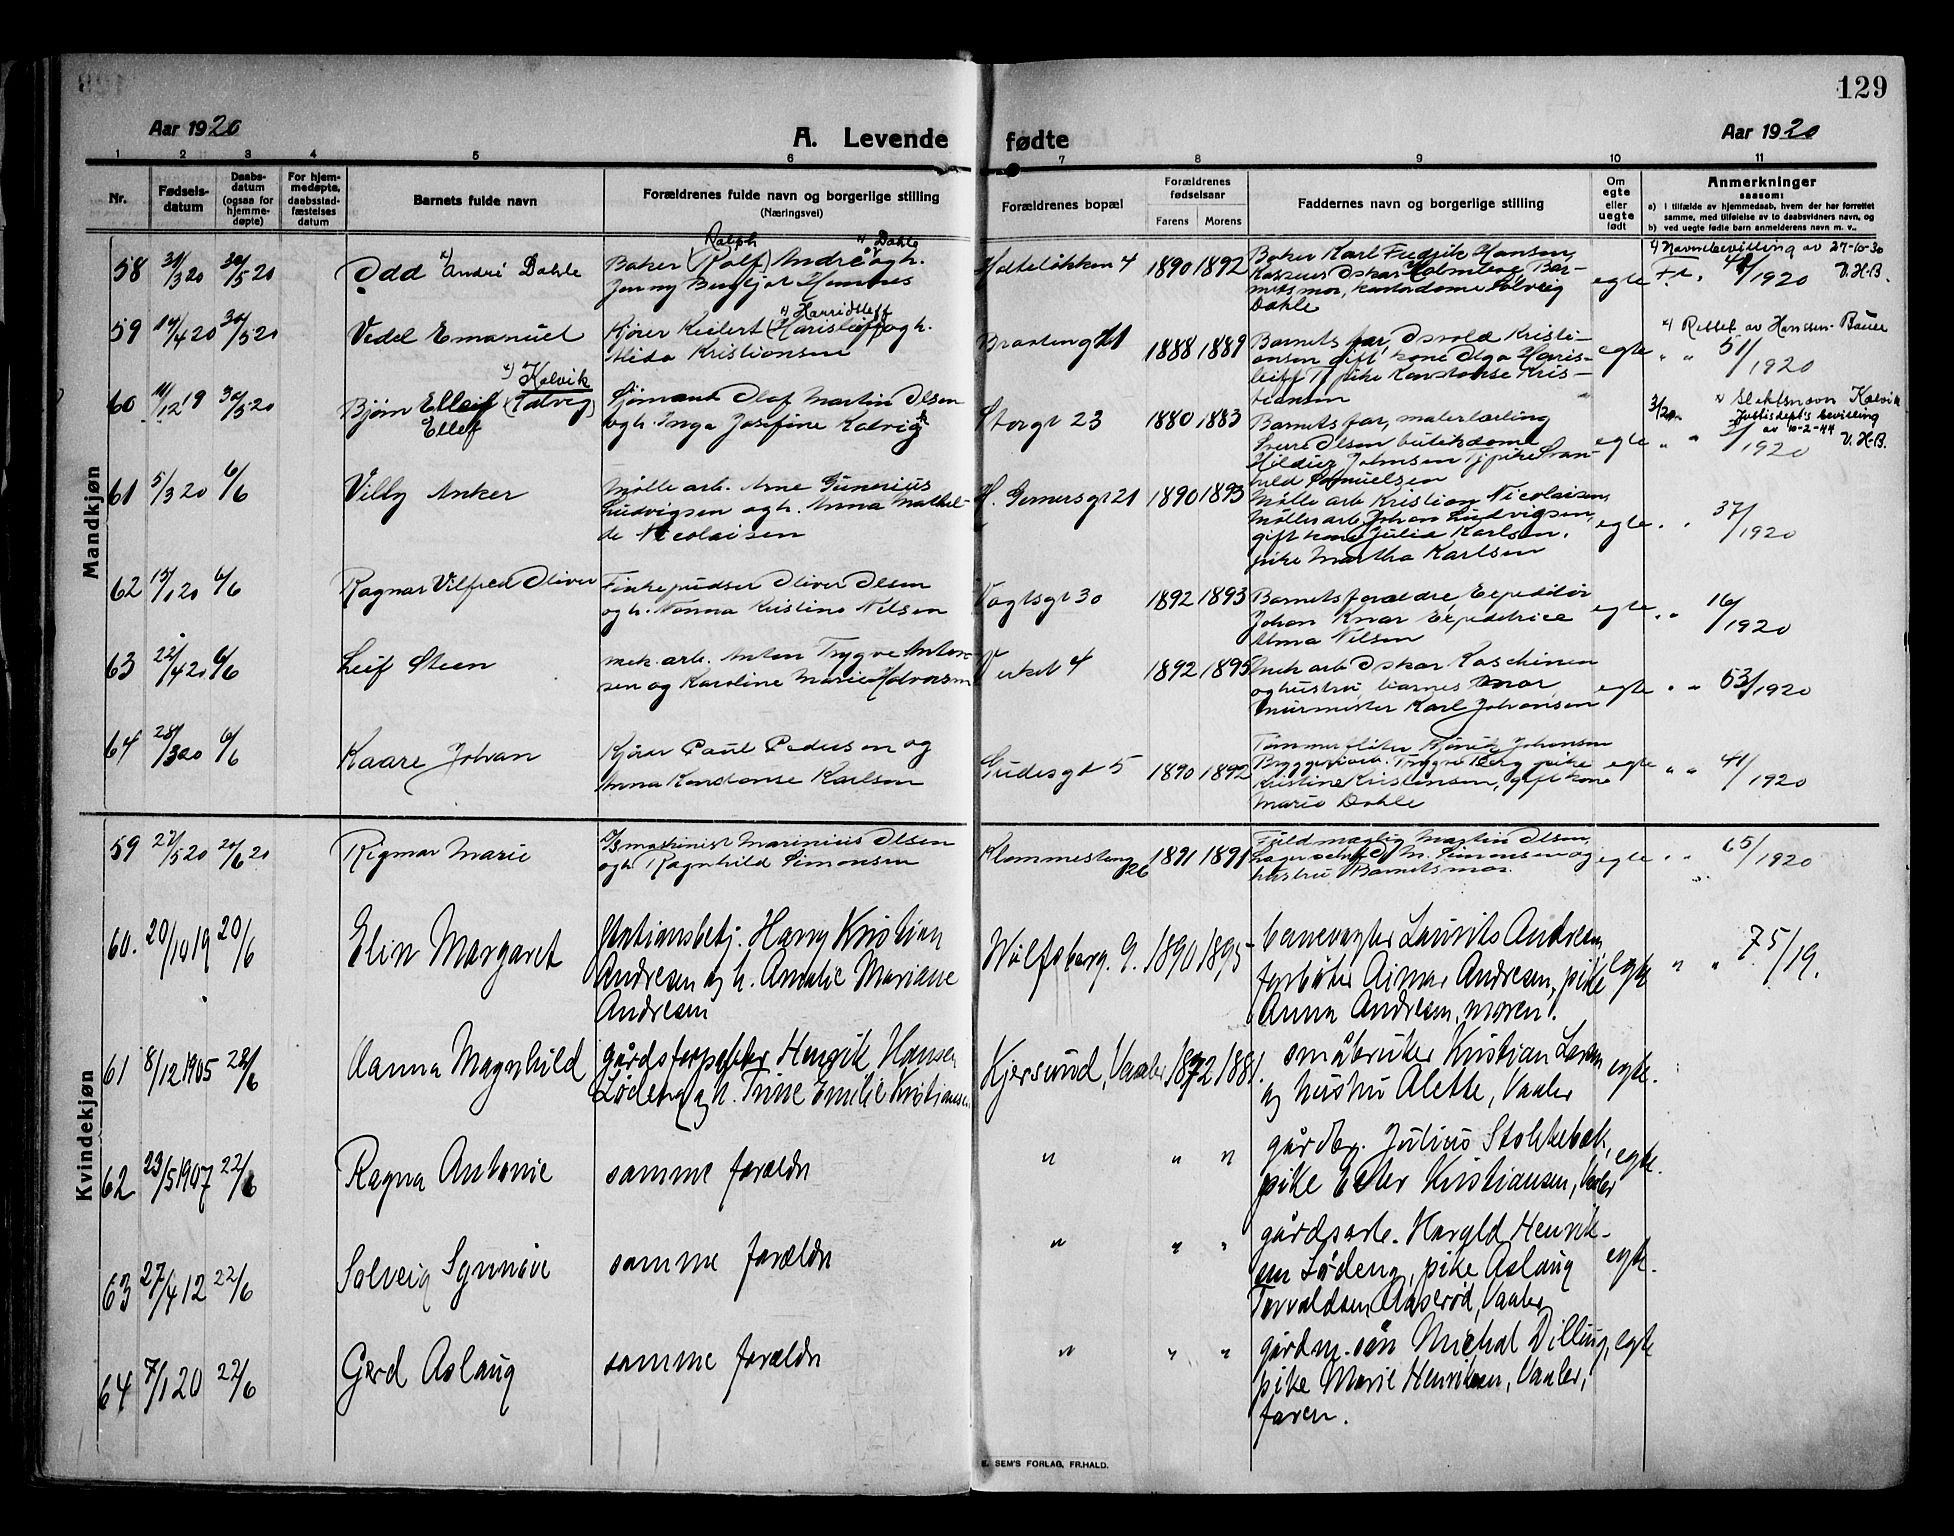 129
Aar 1920
A. Levende fødte
Aar 1920
1 2 3 4 5 6 7 8 9 10 11
Nr.
Fødsels-
datum
Daabs-
datum
(ogsaa for
hjemme-
døpte)
For hjem-
medøpte,
daabsstad-
fæstelses
datum
Barnets fulde navn
Forældrenes fulde navn og borgerlige stilling
(Næringsvei)
Forældrenes bopæl
Forældrenes
fødselsaar
Farens Morens
Faddernes navn og borgerlige stilling
Om
egte
eller
uegte
født
Anmerkninger
saasom:
a) I tilfælde av hjemmedaab, hvem der har forrettet
samme, med tilføielse av to daabsvidners navn, og
b) ved uegte fødte barn anmelderens navn m. v.,
Mandkjøn
58 31/3 20 30/5 20
Odd x) André Dahle
Ralph x) Dahle
Baker (Rolf) André og h.
Jenny Bergljot Hannes
Holteløkken 4
1890 1892
Baker Karl Fredrik Hansen,
Kasserer Oskar Holmberg, Bar-
netsmor, kontordame Solveig
Dahle
egte
x) Navnebevilling av 27-10-30
1920 V.H-B.
59 14/4 20 30/5 20
Vedel Emanuel
x) Harridsleff
Kjører Keilert (Harisleiff) og h.
Alida Kristiansen
Braateng 11
1888 1889
Barnets far, Osvald Kristi-
ansen gift kone Olga Haris-
leiff Tj.pike Konstanse Kris-
tiansen
egte
x) Rettet av Hansen-Bauer
" " 51/1920
60 11/12 19 30/5 20
x) Kalvik
Bjørn Elleif (Talvig)
Ellef
Sjømand Olaf Martin Olsen
og h. Inga Josefine Kalvig
Storgt 23
1880 1883
Barnets far, malerlærling
Sverre Olsen butikdame
Hildur Johnsen Tj.pike Svan-
hild Samuelsen
egte
x) Slektsnavn Kalvik
Justisdept's bevilling
av 10-2-44
V. H-B.
" " 3/1920
61 5/3 20 6/6
Villy Anker
Mølle arb. Arne Gunerius
Ludvigsen og h. Anna Mathil-
de Nicolaisen
H. Gernersgt 21
1890 1893
Mølle arb Kristian Nicolaisen,
Møllearb Johan Ludvigsen,
gift kone Julia Karlsen,
pike Martha Karlsen
egte " " 37/1920
62 15/1 20 6/6
Ragnar Vilfred Oliver
Oliver Olsen
og h. Nanna Kristine Nilsen
Vogtsgt 30
1892 1893
Barnets forældre Expeditør
Johan Knar Expeditrice
Alma Nilsen
egte " " 16/1920
63 22/4 20 6/6
Leif Steen
mek. arb. Anton Trygve Anton-
sen og Karoline Marie Halvorsen
Verket 4
1892 1895
mek arb Oskar Kaschinen
og hustru, barnets mor,
murmester Karl Johansen
egte " " 53/1920
64 28/3 20 6/6
Kaare Johan
Kjører Paul Pedersen og
Anna Konstanse Karlsen
Gudesgt 5
1890 1892
Tømmerfløter Johansen
Bryggeriarb. Trygve Berg pike
Kristine Kristensen, gift kone
Marie Dahle
egte " " 41/1920
Kvindekjøn
59 27/5 20 20/6 20
Rigmor Marie
maskinist Marinius Olsen
og h. Ragnhild Simonsen
Klommesteng 26
1891 1891
Fuldmægtig Martin Olsen,
Simonsen og
hustru Barnets mor.
egte " " 65/1920
60. 20/10 19 20/6
Elin Margaret
Stationsbetj. Harry Kristian
Andresen og h. Amalie Mariane
Andresen
Wulfsberg. 9.
1890 1895
banevagter Laurits Andresen,
forbøter Aimar Andresen, pike
Anna Andresen, moren.
egte " " 75/19.
61 8/12 1905 22/6
Nanna Magnhild
gårdsforpagter Henrik Hansen
Lødeng og h. Trine Emilie Kristiansen
Kjersund, Vaaler
1872 1881.
småbruker Kristian Larsen
og hustru Alette, Vaaler
egte.
62 23/5 1907 22/6
Ragna Antonie
samme forældre
" " "
gårdbr. Julius Stokkebæk,
pike Ester Kristiansen, Vaaler
egte.
63 27/4 12 22/6
Solveig Synnøve
samme forældre
" " "
gårdsarb. Harald Henrik-
sen Lødeng, pike Aslaug
Torvaldsen Aaserød, Vaaler
egte.
64 7/1 20 22/6
Gerd Aslaug
samme forældre
" " "
gårdm. søn Michal Dilling,
pike Marie Henriksen, Vaaler,
faren.
egte
E. SEM'S FORLAG, FR.HALD.